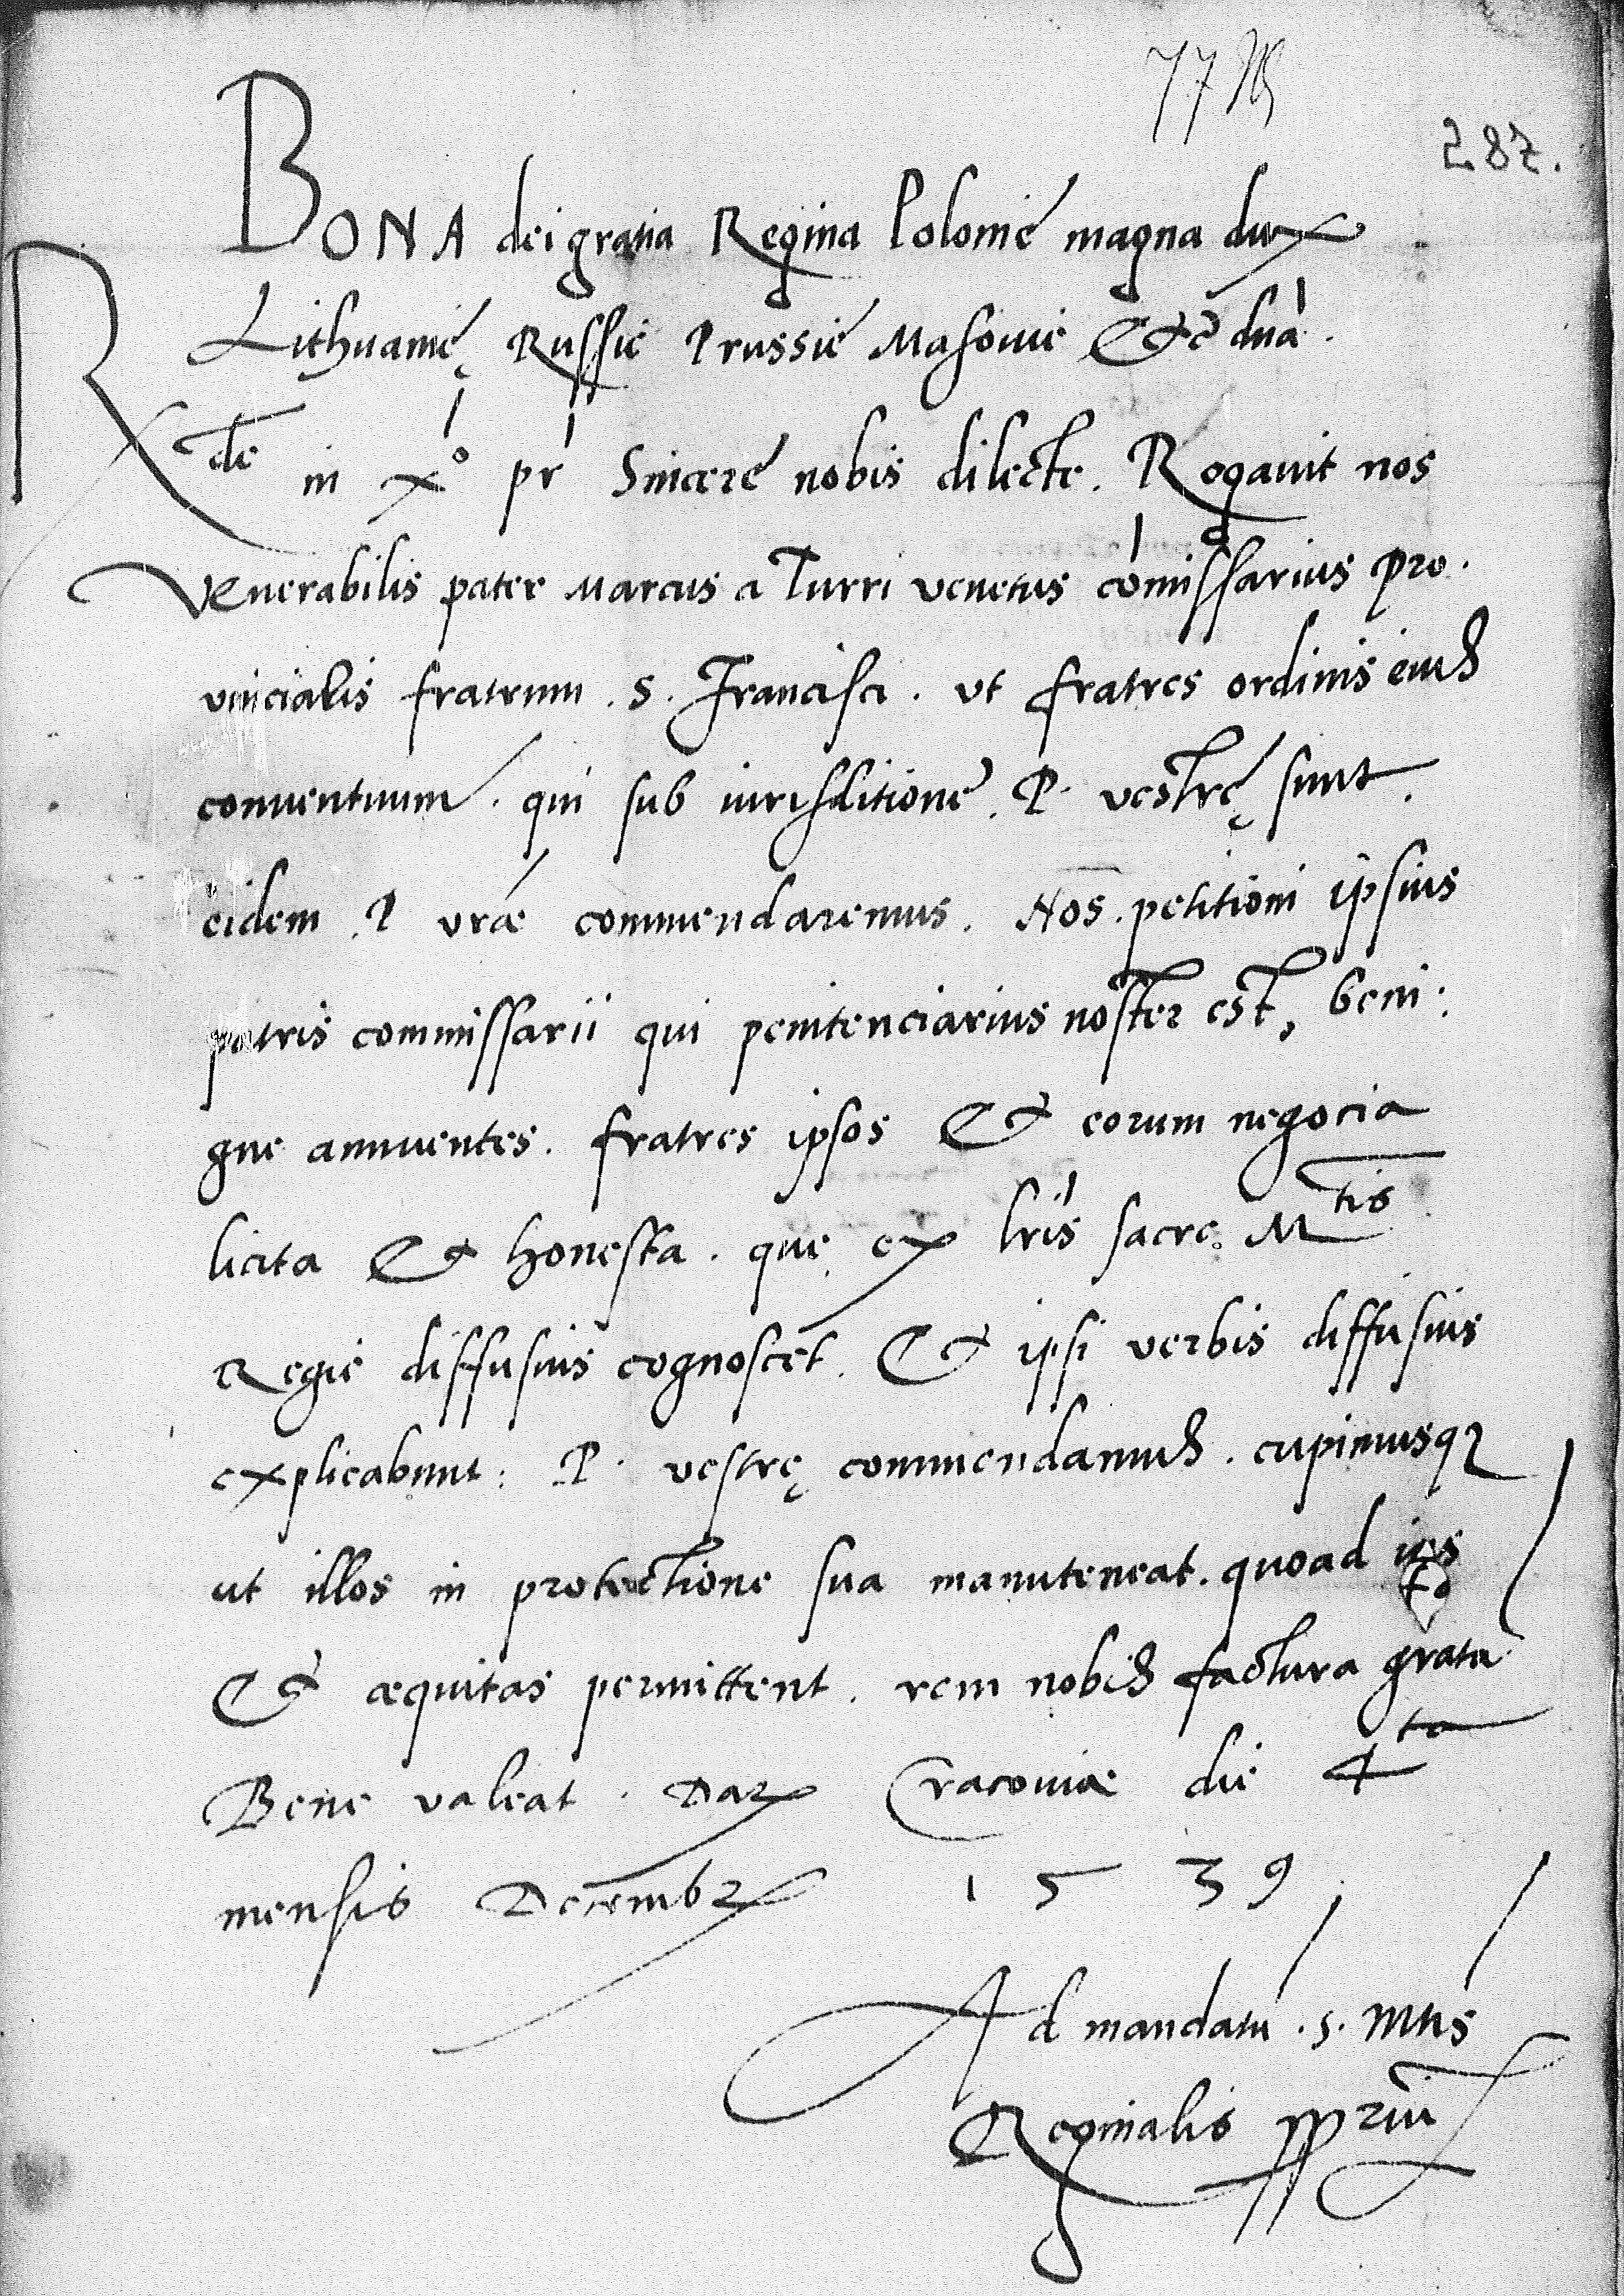 287.
BONA dei gratia Regina Polonie magna dux
Lithuanię Russie Prussie Masovie Etc̃ dna.
Rde in Xo pr Sincere nobis dilecte. Rogavit nos
Venerabilis pater Marcus a Turri venetus comissarius pro.
vincialis fratrum . S. Francisci . ut fratres ordinis eius
conventuum . qui sub iurisditione . P. vestrę sunt.
eidem . P vræ commendaremus. Nos . petitioni ipsius
patris commissarii qui penitenciarius noster est, beni:
gne annuentes . fratres ipsos Et eorum negocia
licita Et honesta . que ex lris sacre Mtis
Regie diffusius cognoscet . Et ipsi verbis diffusius
explicabunt : P. vestrę commendamus . cupimusq3
ut illos in protectione sua manuteneat . quoad ius
Et æquitas permittent . rem nobis factura gratã
Bene valeat . Dat Cracoviæ die 4ta
mensis Decembr 1539
Ad mandatu . S. Mtis
Reginalis ppriu